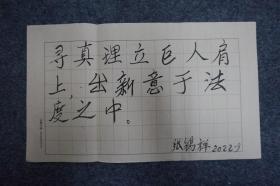 寻真理立巨人肩
上,出新意于法
度之中。
张锡祥 2022.9